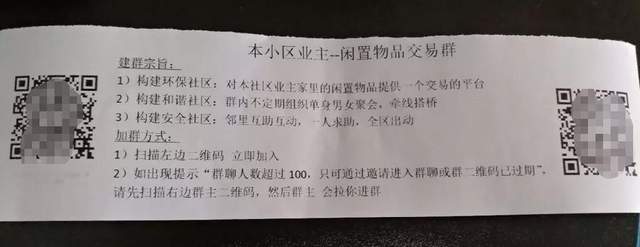 本小区业主--闲置物品交易群
建群宗旨：
1）构建环保社区：对本社区业主家里的闲置物品提供一个交易的平台
2）构建和谐社区：群内不定期组织单身男女聚会，牵线搭桥
3）构建安全社区：邻里互助互动，一人求助，全区出动
加群方式：
1）扫描左边二维码 立即加入
2）如出现提示“群聊人数超过100，只可通过邀请进入群聊或群二维码已过期”，
请先扫描右边群主二维码，然后群主 会拉你进群